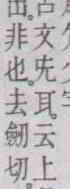 古文先耳。云上
出。非也。去劒切。